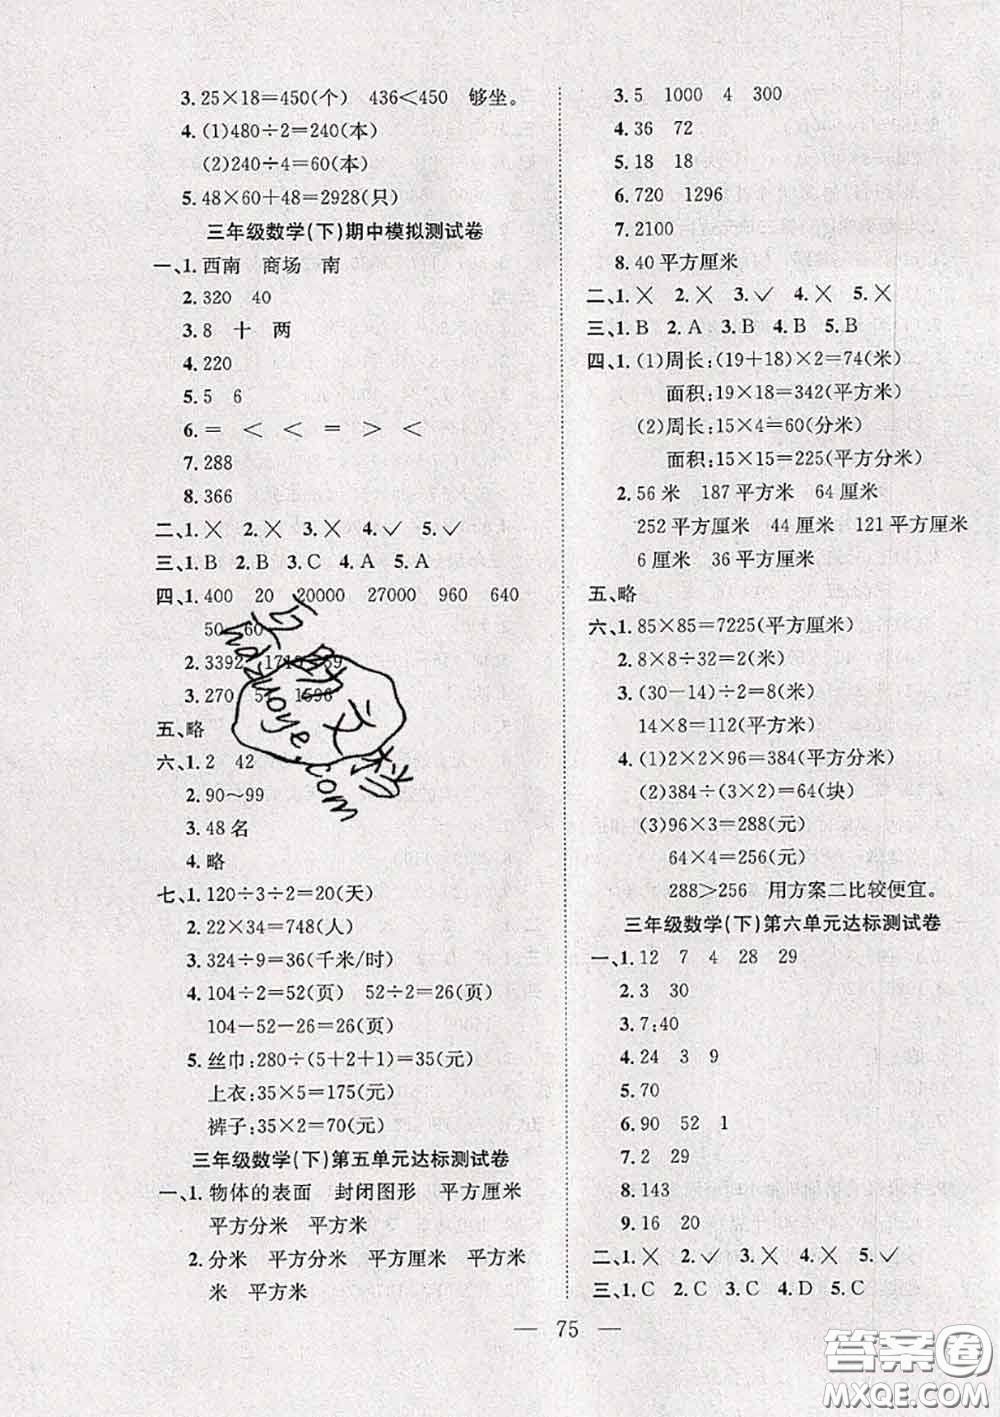 3.25×18=450(个)　436<450　够坐。
4.(1)480÷2=240(本)
(2)240÷4=60(本)
5.48×60+48=2928(只)
三年级数学(下)期中模拟测试卷
一、1.西南　商场　南
2.320　40
3.8　十　两
4.220
5.5　6
6.=　<　<　=　>　<
7.288
8.366
二、1.╳　2.╳　3.╳　4.✓　5.✓
三、1.B　2.B　3.C　4.A　5.A
四、1.400　20　20000　27000　960　640
50　60
2.3392
3.270　1596
五、略
六、1.2　42
2.90～99
3.48名
4.略
七、1.120÷3÷2=20(天)
2.22×34=748(人)
3.324÷9=36(千米/时)
4.104÷2=52(页)　52÷2=26(页)
104-52-26=26(页)
5.丝巾:280÷(5+2+1)=35(元)
上衣:35×5=175(元)
裤子:35×2=70(元)
三年级数学(下)第五单元达标测试卷
一、1.物体的表面　封闭图形　平方厘米
平方分米　平方米
2.分米　平方分米　平方厘米　平方米
米　平方米
3.5　1000　4　300
4.36　72
5.18　18
6.720　1296
7.2100
8.40平方厘米
二、1.╳　2.╳　3.✓　4.╳　5.╳
三、1.B　2.A　3.B　4.B　5.B
四、1.(1)周长:(19+18)×2=74(米)
面积:19×18=342(平方米)
(2)周长:15×4=60(分米)
面积:15×15=225(平方分米)
2.56米　187平方米　64厘米
252平方厘米　44厘米　121平方厘米
6厘米　36平方厘米
五、略
六、1.85×85=7225(平方厘米)
2.8×8÷32=2(米)
3.(30-14)÷2=8(米)
14×8=112(平方米)
4.(1)2×2×96=384(平方分米)
(2)384÷(3×2)=64(块)
(3)96×3=288(元)
64×4=256(元)
288>256　用方案二比较便宜。
三年级数学(下)第六单元达标测试卷
一、1.12　7　4　28　29
2.3　30
3.7:40
4.24　3　9
5.70
6.90　52　1
7.2　29
8.143
9.16　20
二、1.╳　2.✓　3.╳　4.╳　5.✓
三、1.C　2.C　3.C　4.D　5.C
— 75 —
hazuoye.com
答案圈
MXQE.COM